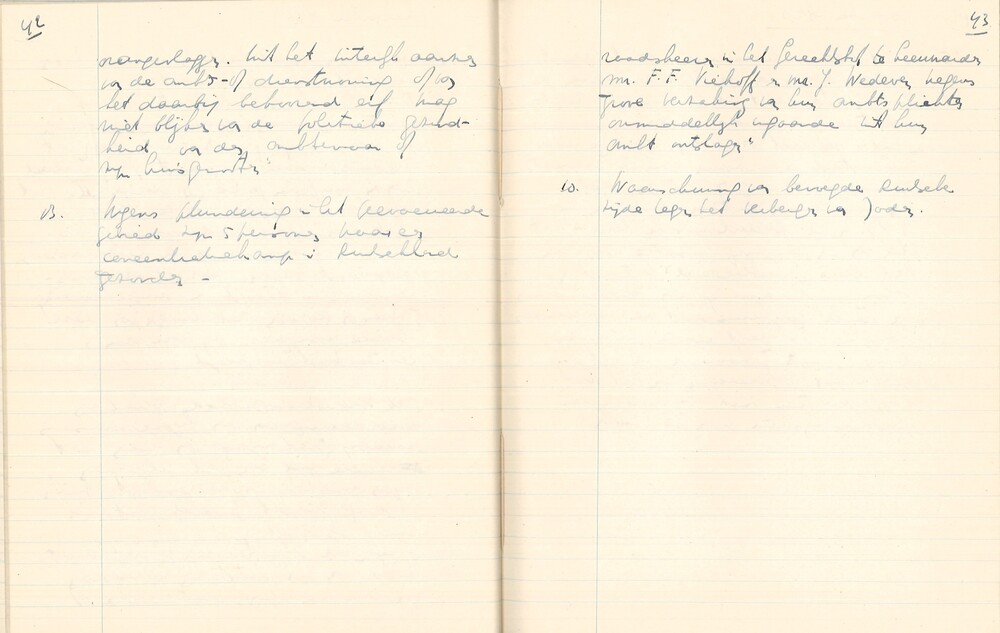 42
Uit het uiterlijk aanzien
v. de ambts- of dienstwoning of v.
het daarbij behoorend erf mag
niet blijken v. de politieke gezind-
heid v. den ambtenaar of
zijn huisgenooten"
13. Wegens plundering i. het geevacueerde
gebied zijn 5 personen naar een
concentratiekamp i. Duitschland
gezonden -
43
raadsheeren in het Gerechtshof te Leeuwarden
mr. F.F. Viehoff en mr. J. Wedeven wegens
grove verzaking v. hun ambtsplichten
onmiddellijk ingaande uit hun
ambt ontslagen"
10. Waarschuwing van bevoegde Duitsche
zijde tegen het verbergen v. Joden.